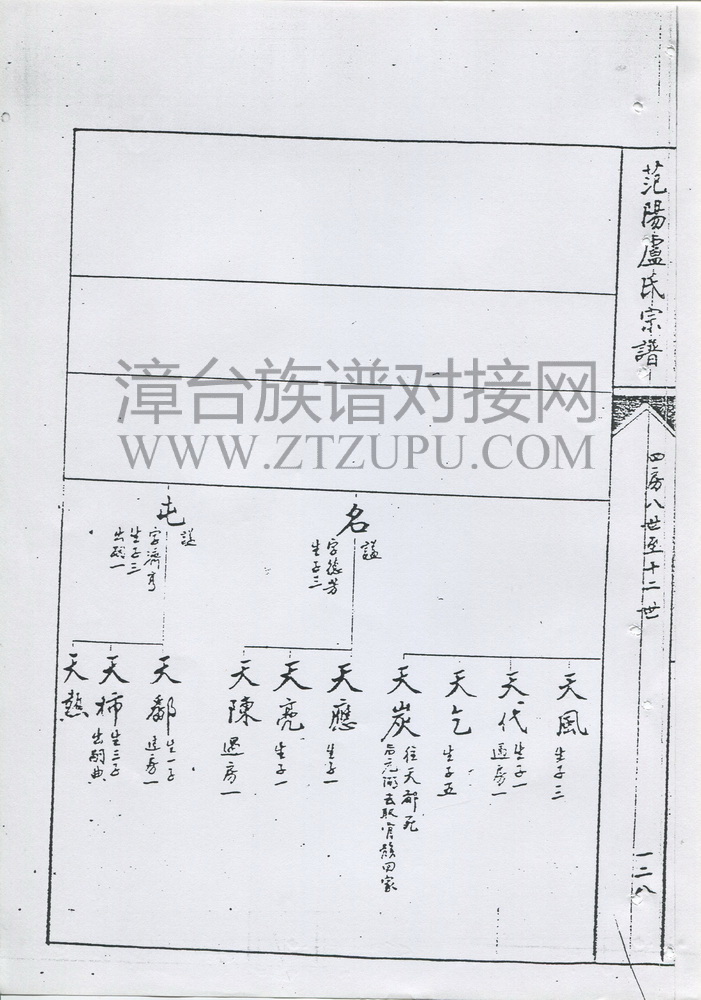 范陽盧氏宗譜
四房八世至十二世
一二八
漳台族谱对接网
WWW.ZTZUPU.COM
名
謚
字德芳
生子三
屯
謚
字濟亨
生子三
出嗣一
天風
生子三
天代
生子一
過房一
天乞
生子五
天炭
往天都死
天應
生子一
天亮
生子一
天陳
過房一
天鄱
生一子
過房一
天柿
生三子
出嗣典
天熱